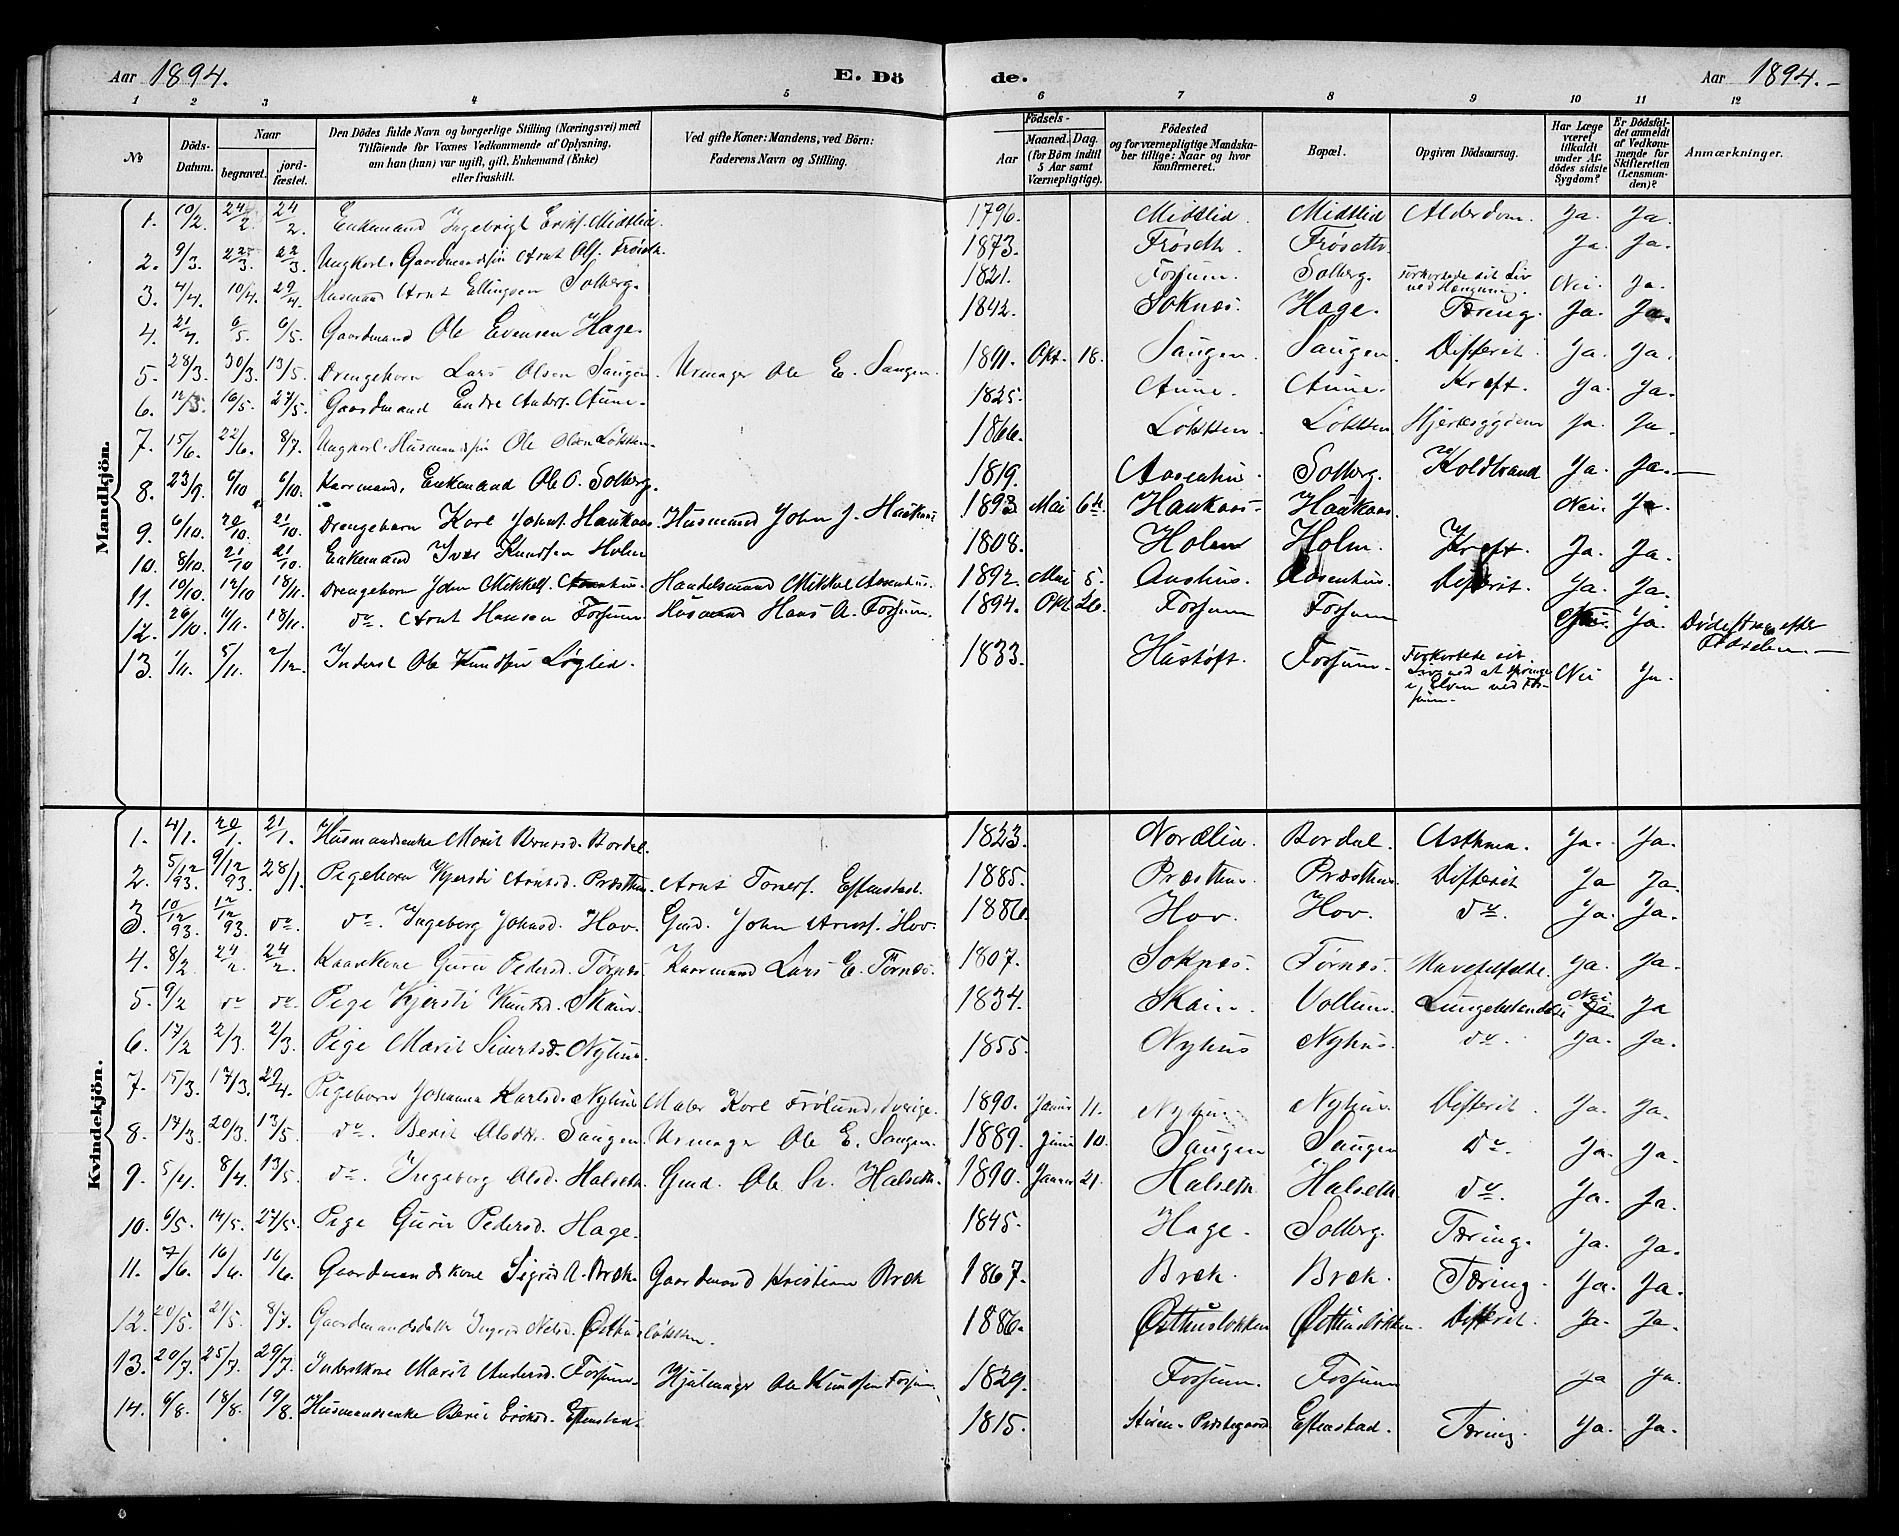 Aar 1894. E. Dö de. Aar 1894.-
1 2 3 4 5 6 7 8 9 10 11 12
No
Döds-Datum.
Naar
begravet.
jord-fæstet.
Den Dödes fulde Navn og borgerlige Stilling (Næringsvei) med
Tilföiende for Voxnes Vedkommende af Oplysning,
om han (hun) var ugift, gift, Enkemand (Enke)
eller fraskilt.
Ved gifte Koner: Mandens, ved Börn:
Faderens Navn og Stilling.
Födsels-
Aar
Maaned. Dag.
(for Börn indtil
5 Aar samt
Værnepligtige).
Födested
og for værnepligtige Mandska-
ber tillige: Naar og hvor
konfirmeret.
Bopæl.
Opgiven Dödsaarsag.
Har Læge
været
tilkaldt
under Af-
dödes sidste
Sygdom?
Er Dödsfal-
det anmeldt
af Vedkom-
mende for
Skifteretten
(Lensman-
den)?
Anmærkninger.
Mandkjön.
1. 10/2. 24/2. 24/2. Enkemand Ingebrigt Eriks. Midtlid. 1796. Midtlid. Midtlid Alderdom. Ja. Ja.
2. 9/3. 22/3. 22/3. Ungkarl. Gaardmandssøn Arnt Olss. Frøseth. 1873. Frøseth. Frøseth. Ja. Ja.
3. 4/4. 10/4. 29/4. Husmand Arnt Ellingsen Solberg. 1821. Fossum. Solberg. Forkortede sit Liv ved Hængning. Nei. Ja.
4. 21/4. 6/5. 6/5. Gaardmand Ole Evensen Hage. 1842. Soknes. Hage. Tæring. Ja. Ja.
5. 28/3. 30/3. 13/5. Drengebarn Lars Olsen Saugen. Urmager Ole E. Saugen. 1891. Okt. 18. Saugen. Saugen. Difterit. Ja. Ja.
6. 12/5. 16/5. 27/5. Gaardmand Endre Anders. Aune. 1825. Aune. Aune. Kræft. Ja. Ja.
7. 15/6. 22/6. 8/7. Ungkarl. Husmandssøn Ole Olsen Løkken. 1866. Løkken. Løkken. Hjertesygdom Ja. Ja.
8. 23/9. 6/10 6/10. Kaarmand, Enkemand Ole O. Solberg. 1819. Aasenhus. Solberg. Koldbrand Ja. Ja.
9. 6/10. 20/10. 21/10. Drengebarn Karl Johns. Haukaas. Husmand John J. Haukaas 1893 Mai 6te Haukaas. Haukaas. Nei. Ja.
10. 8/10. 21/10 21/10. Enkemand Iver Knudsen Holm 1808. Holm Holm. Kræft. Ja. Ja.
11. 10/10. 12/10 18/11. Drengebarn John Mikkels. Aasenhus. Handelsmand Mikkel Aasenhus. 1892. Mai 5. Aashus. Aasenhus. Difterit. Ja. Ja.
12. 26/10. 4/11. 18/11. do. Arnt Hansen Fossum. Husmand Hans A. Fossum. 1894. Okt 26. Fossum Fossum Nei. Ja. Døde strax efter Fødselen.
13. 1/11. 5/11. 2/12. Inderst Ole Knudsen Løglid. 1833. Hustøft. Fossum. Forkortede sit Liv ved at springe i Elven ved Fossum. Nei Ja.
Kvindekjön.
1. 4/1. 20/1. 21/1. Husmandsenke Marit Berntsd. Bordal. 1823. Nordlid. Bordal. Asthma. Ja. Ja.
2. 5/12 93. 9/12 93. 28/1. Pigebarn Kjersti Arntsd. Præsthus. Arnt Tomess. Eftenstad. 1885. Præsthus. Præsthus. Difterit Ja Ja.
3. 10/12 93. 12/12 93. do. do. Ingeborg Johnsd. Hov. Gmd. John Arnss. Hov. 1886. Hov. Hov. do. Ja. Ja.
4. 8/2. 24/2. 24/2. Kaarkone Guru Pedersd. Tørnes. Kaarmand Lars E. Tørnes. 1807. Soknes. Tørnes. Mavetilfælde. Ja. Ja.
5. 9/2 do do. Pige Kjersti Knutsd. Skain. 1834. Skain. Vollum. Lungebetændelse Nei Ja Ja
6. 17/2 2/3. 2/3. Pige Marit Sivertsd. Nyhus. 1855. Nyhus Nyhus. do. Ja. Ja.
7. 15/3. 17/3. 29/4. Pigebarn Johanna Karlsd. Nyhus Maler Karl Frølund, Sverige. 1890. Januar 11. Nyhus. Nyhus. Difterit. Ja. Ja.
8. 17/3. 20/3. 13/5. do. Berit Olsdtr. Saugen. Urmager Ole E. Saugen. 1889. Juni 10. Saugen Saugen do. Ja. Ja.
9. 5/4. 8/4. 13/5. do. Ingeborg Olsd. Halseth. Gmd. Ole Sr. Halseth. 1890. Januar 21. Halseth Halseth. do. Ja. Ja.
10. 6/5. 14/5. 27/5. Pige Guru Pedersd. Hage. 1845. Hage. Solberg. Tæring. Ja. Ja.
11. 7/6. 16/6. 16/6. Gaardmandskone Sigrid A. Bræk. Gaardmand Kristian Bræk 1867. Bræk. Bræk. Tæring. Ja. Ja.
12. 20/5. 21/5. 8/7. Gaardmandsdatter Ingrid Nilsd. Østhusløkken. 1886. Østhusløkken Østhusløkken. Difterit. Ja. Ja.
13. 20/7. 25/7. 29/7. Inderstkone Marit Andersd. Fossum. Hjulmager Ole Knudsen Fossum. 1829. Fossum. Fossum Ja Ja.
14. 6/8. 18/8. 19/8. Husmandsenke Berit Eriksd. Eftenstad. 1815. Støren Præstegaard Eftenstad. Tæring. Ja. Ja.